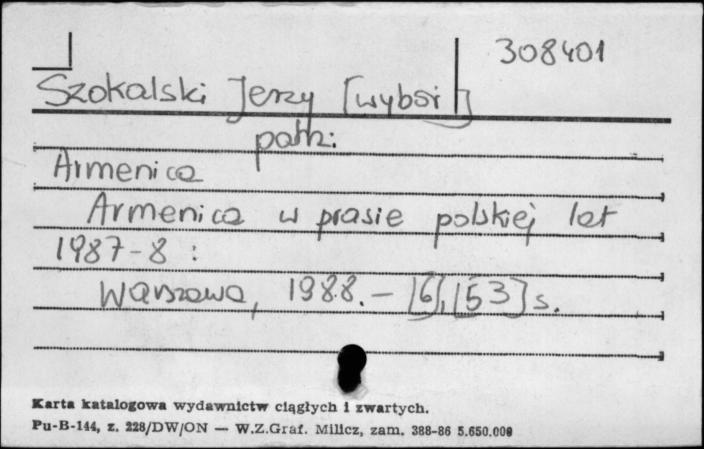 308401
Szokalski Jerzy [wybór]
patrz:
Armenica
Armenica w prasie polskiej lat
1987-8 :
Warszawa, 1988. - [6], [53] s.
Karta katalogowa wydawnictw ciągłych i zwartych.
Pu-B-144, z. 228/DW/ON — W.Z.Graf. Milicz, zam. 388-86 5.650.000